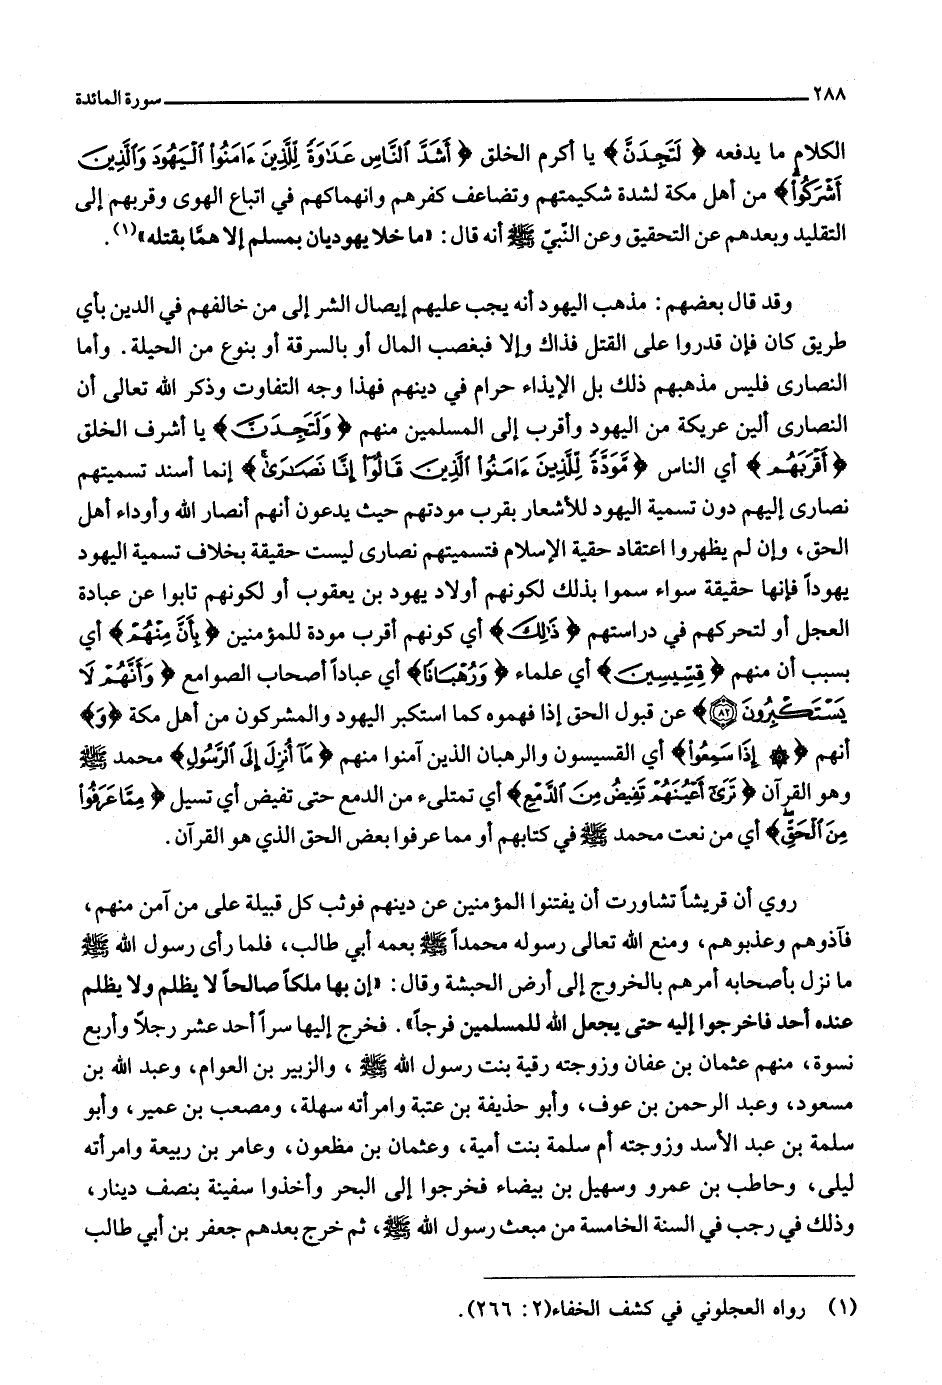 ٢٨٨ سورة المائدة
الكلام ما يدفعه ﴿ لَتَجِدَنَّ ﴾ يا أكرم الخلق ﴿ أَشَدَّ ٱلنَّاسِ عَدَٰوَةً لِّلَّذِينَ ءَامَنُوا۟ ٱلْيَهُودَ وَٱلَّذِينَ
أَشْرَكُوا۟ۖ ﴾ من أهل مكة لشدة شكيمتهم وتضاعف كفرهم وانهماكهم في اتباع الهوى وقربهم إلى
التقليد وبعدهم عن التحقيق وعن النّبيّ ﷺ أنه قال: «ما خلا يهوديان بمسلم إلا همّا بقتله»(١).
وقد قال بعضهم: مذهب اليهود أنه يجب عليهم إيصال الشر إلى من خالفهم في الدين بأي
طريق كان فإن قدروا على القتل فذاك وإلا فبغصب المال أو بالسرقة أو بنوع من الحيلة. وأما
النصارى فليس مذهبهم ذلك بل الإيذاء حرام في دينهم فهذا وجه التفاوت وذكر الله تعالى أن
النصارى ألين عريكة من اليهود وأقرب إلى المسلمين منهم ﴿ وَلَتَجِدَنَّ ﴾ يا أشرف الخلق
﴿ أَقْرَبَهُم ﴾ أي الناس ﴿ مَّوَدَّةً لِّلَّذِينَ ءَامَنُوا۟ ٱلَّذِينَ قَالُوٓا۟ إِنَّا نَصَٰرَىٰۚ ﴾ إنما أسند تسميتهم
نصارى إليهم دون تسمية اليهود للأشعار بقرب مودتهم حيث يدعون أنهم أنصار الله وأوداء أهل
الحق، وإن لم يظهروا اعتقاد حقية الإسلام فتسميتهم نصارى ليست حقيقة بخلاف تسمية اليهود
يهوداً فإنها حقيقة سواء سموا بذلك لكونهم أولاد يهود بن يعقوب أو لكونهم تابوا عن عبادة
العجل أو لتحركهم في دراستهم ﴿ ذَٰلِكَ ﴾ أي كونهم أقرب مودة للمؤمنين ﴿ بِأَنَّ مِنْهُمْ ﴾ أي
بسبب أن منهم ﴿ قِسِّيسِينَ ﴾ أي علماء ﴿ وَرُهْبَانًا ﴾ أي عباداً أصحاب الصوامع ﴿ وَأَنَّهُمْ لَا
يَسْتَكْبِرُونَ ٨٢ ﴾ عن قبول الحق إذا فهموه كما استكبر اليهود والمشركون من أهل مكة ﴿ وَ ﴾
أنهم ﴿ ۞ إِذَا سَمِعُوا۟ ﴾ أي القسيسون والرهبان الذين آمنوا منهم ﴿ مَآ أُنزِلَ إِلَى ٱلرَّسُولِ ﴾ محمد ﷺ
وهو القرآن ﴿ تَرَىٰٓ أَعْيُنَهُمْ تَفِيضُ مِنَ ٱلدَّمْعِ ﴾ أي تمتلىء من الدمع حتى تفيض أي تسيل ﴿ مِمَّا عَرَفُوا۟
مِنَ ٱلْحَقِّۖ ﴾ أي من نعت محمد ﷺ في كتابهم أو مما عرفوا بعض الحق الذي هو القرآن.
روي أن قريشاً تشاورت أن يفتنوا المؤمنين عن دينهم فوثب كل قبيلة على من آمن منهم،
فآذوهم وعذبوهم، ومنع الله تعالى رسوله محمداً ﷺ بعمه أبي طالب، فلما رأى رسول الله ﷺ
ما نزل بأصحابه أمرهم بالخروج إلى أرض الحبشة وقال: «إن بها ملكاً صالحاً لا يظلم ولا يظلم
عنده أحد فاخرجوا إليه حتى يجعل الله للمسلمين فرجاً». فخرج إليها سراً أحد عشر رجلاً وأربع
نسوة، منهم عثمان بن عفان وزوجته رقية بنت رسول الله ﷺ، والزبير بن العوام، وعبد الله بن
مسعود، وعبد الرحمن بن عوف، وأبو حذيفة بن عتبة وامرأته سهلة، ومصعب بن عمير، وأبو
سلمة بن عبد الأسد وزوجته أم سلمة بنت أمية، وعثمان بن مظعون، وعامر بن ربيعة وامرأته
ليلى، وحاطب بن عمرو وسهيل بن بيضاء فخرجوا إلى البحر وأخذوا سفينة بنصف دينار،
وذلك في رجب في السنة الخامسة من مبعث رسول الله ﷺ، ثم خرج بعدهم جعفر بن أبي طالب
(١) رواه العجلوني في كشف الخفاء(٢: ٢٦٦).